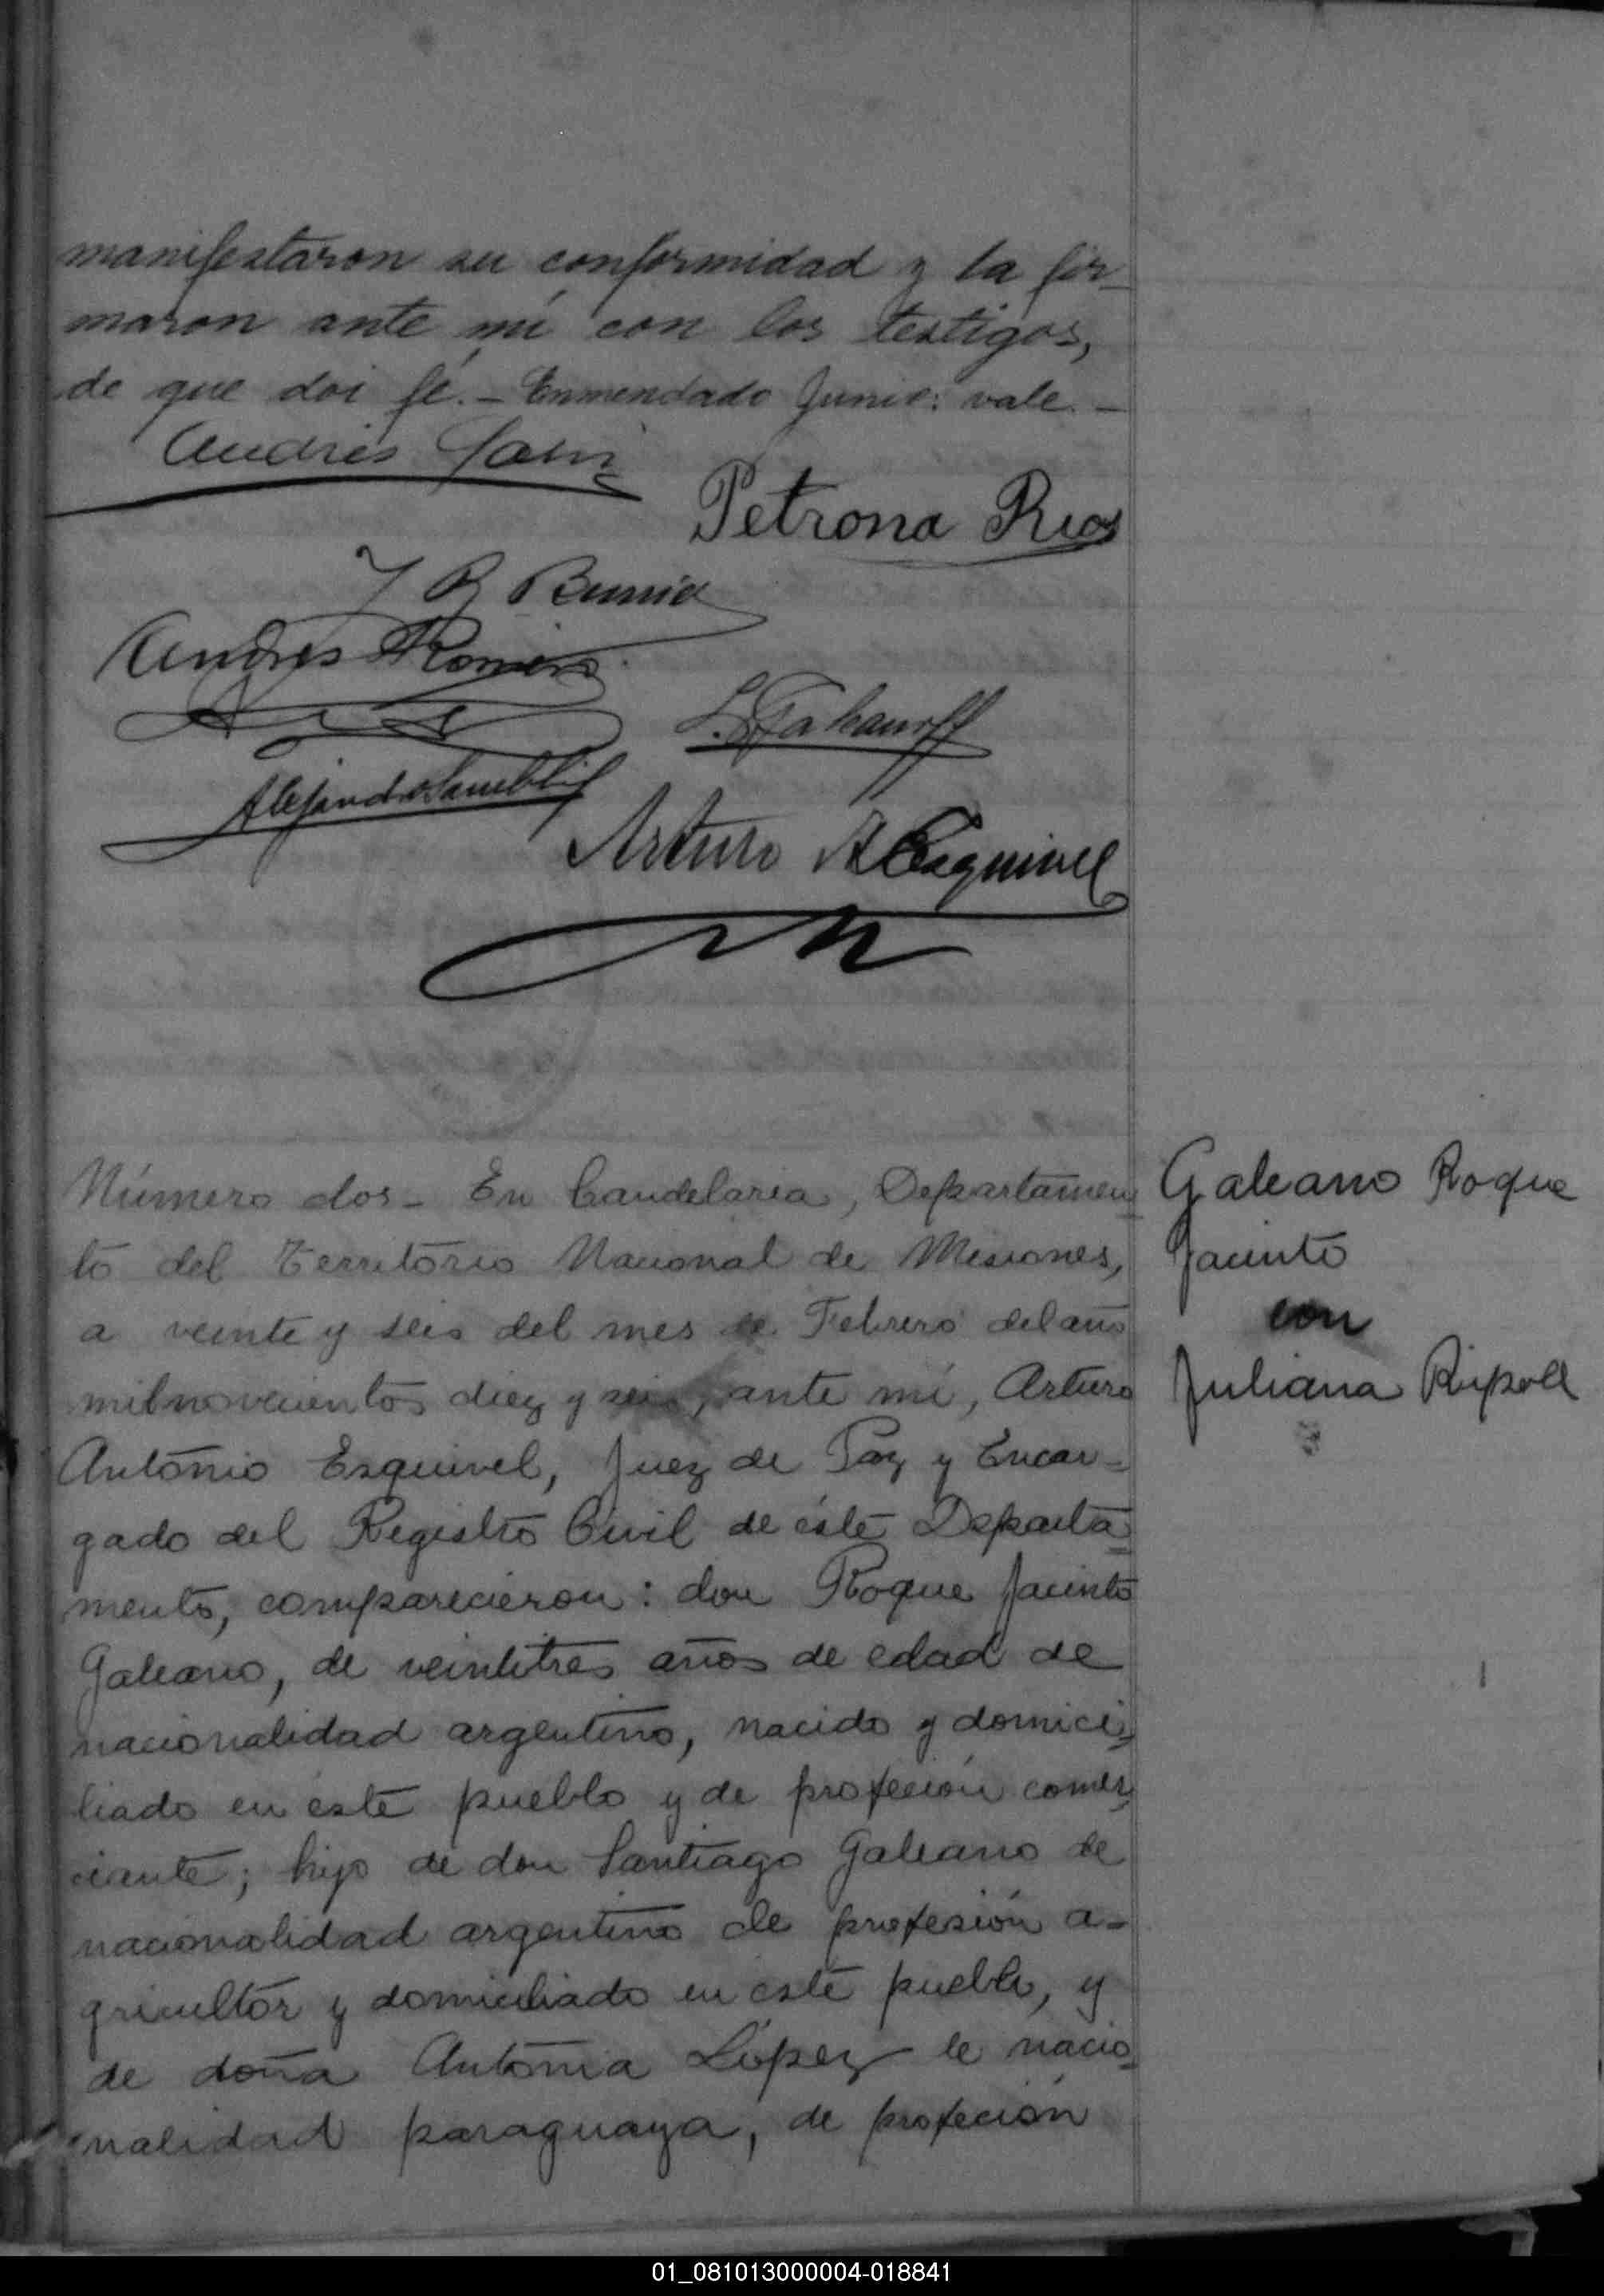 manifestaron su conformidad y la fir_
maron ante mí con los testigos,
de que doi fé. _ Enmendado Junio: vale. _
Andrés
Petrona Rios
Andres Romero
Arturo A Esquivel
Número dos _ En Candelaria, Departamen_
to del Territorio Nacional de Misiones,
a veinte y seis del mes de Febrero del año
mil novecientos diez y seis, ante mí, Arturo
Antonio Esquivel, Juez de Paz y Encar_
gado del Registro Civil de éste Departa_
mento, comparecieron: don Roque Jacinto
Galeano, de veintitres años de edad de
nacionalidad argentino, nacido y domici_
liado en éste pueblo y de profeción comer_
ciante; hijo de don Santiago Galeano de
nacionalidad argentino de profesión a_
gricultor y domiciliado en este pueblo, y
de doña Antonia López de nacio_
nalidad paraguaya, de profeción
Galeano Roque
Jacinto
con
Juliana Ripoll
01_081013000004-018841